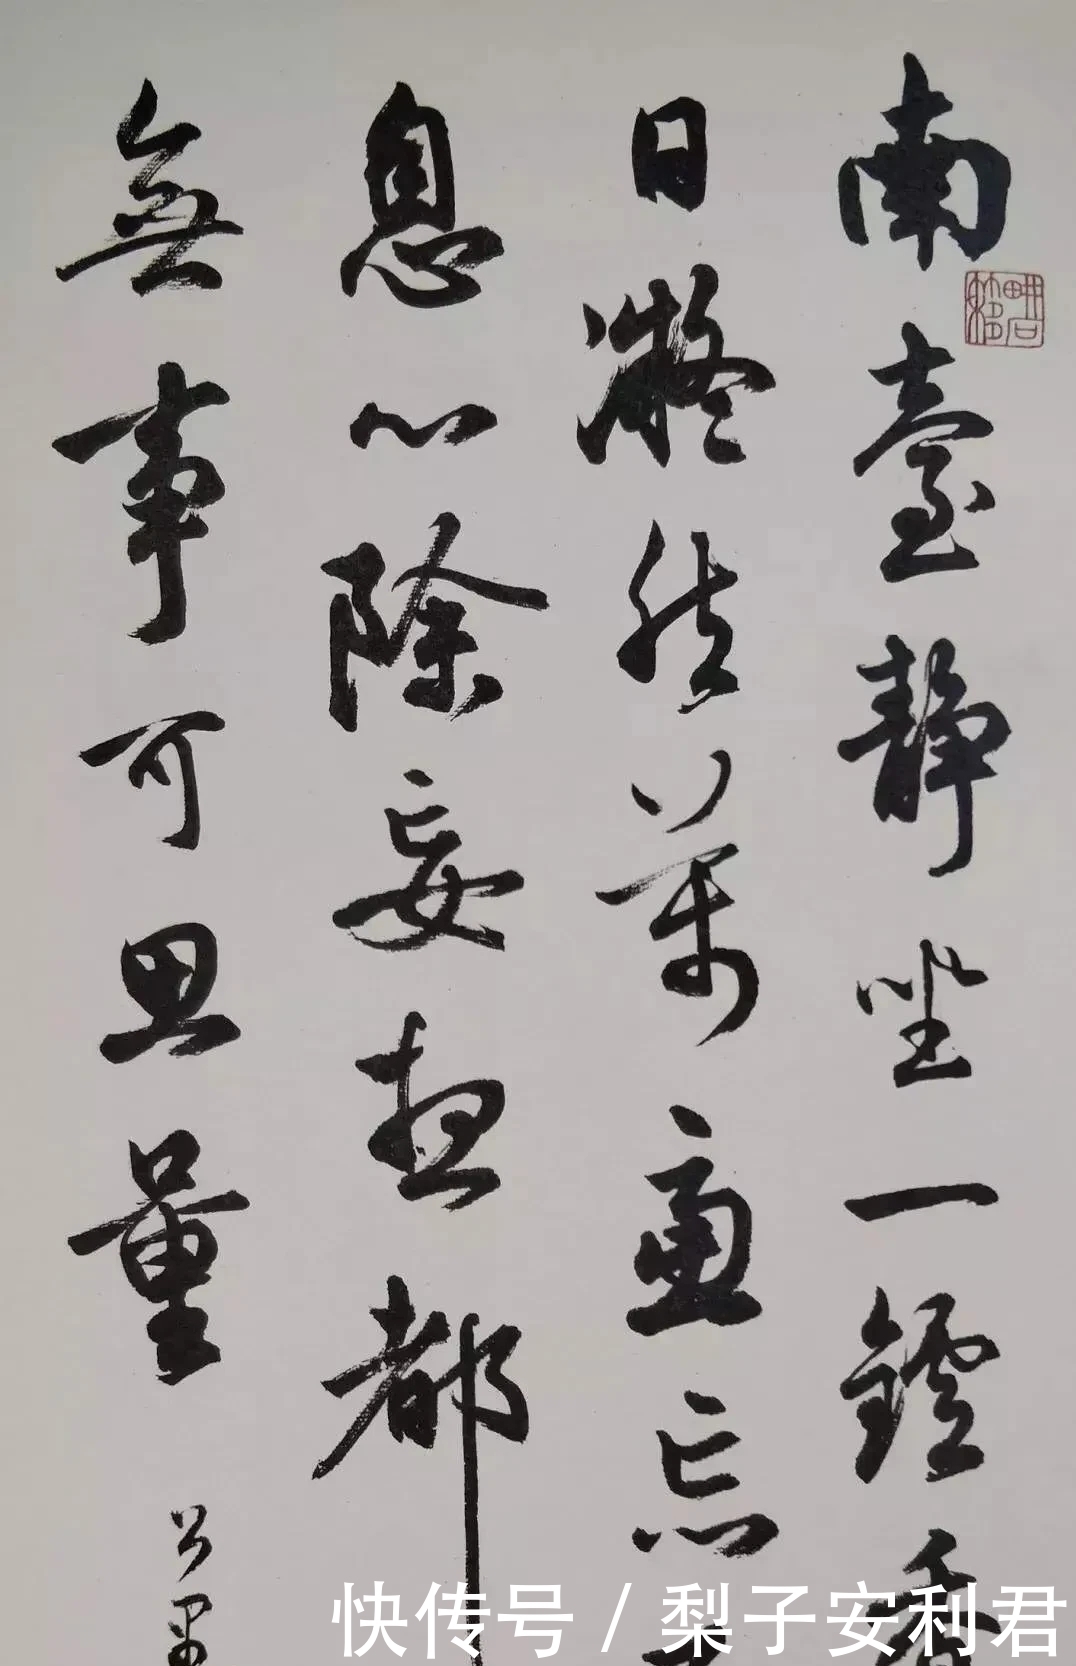 南臺靜坐一鑪香
日凝然萬慮忘
息心除妄想都
無事可思量
快传号/梨子安利君